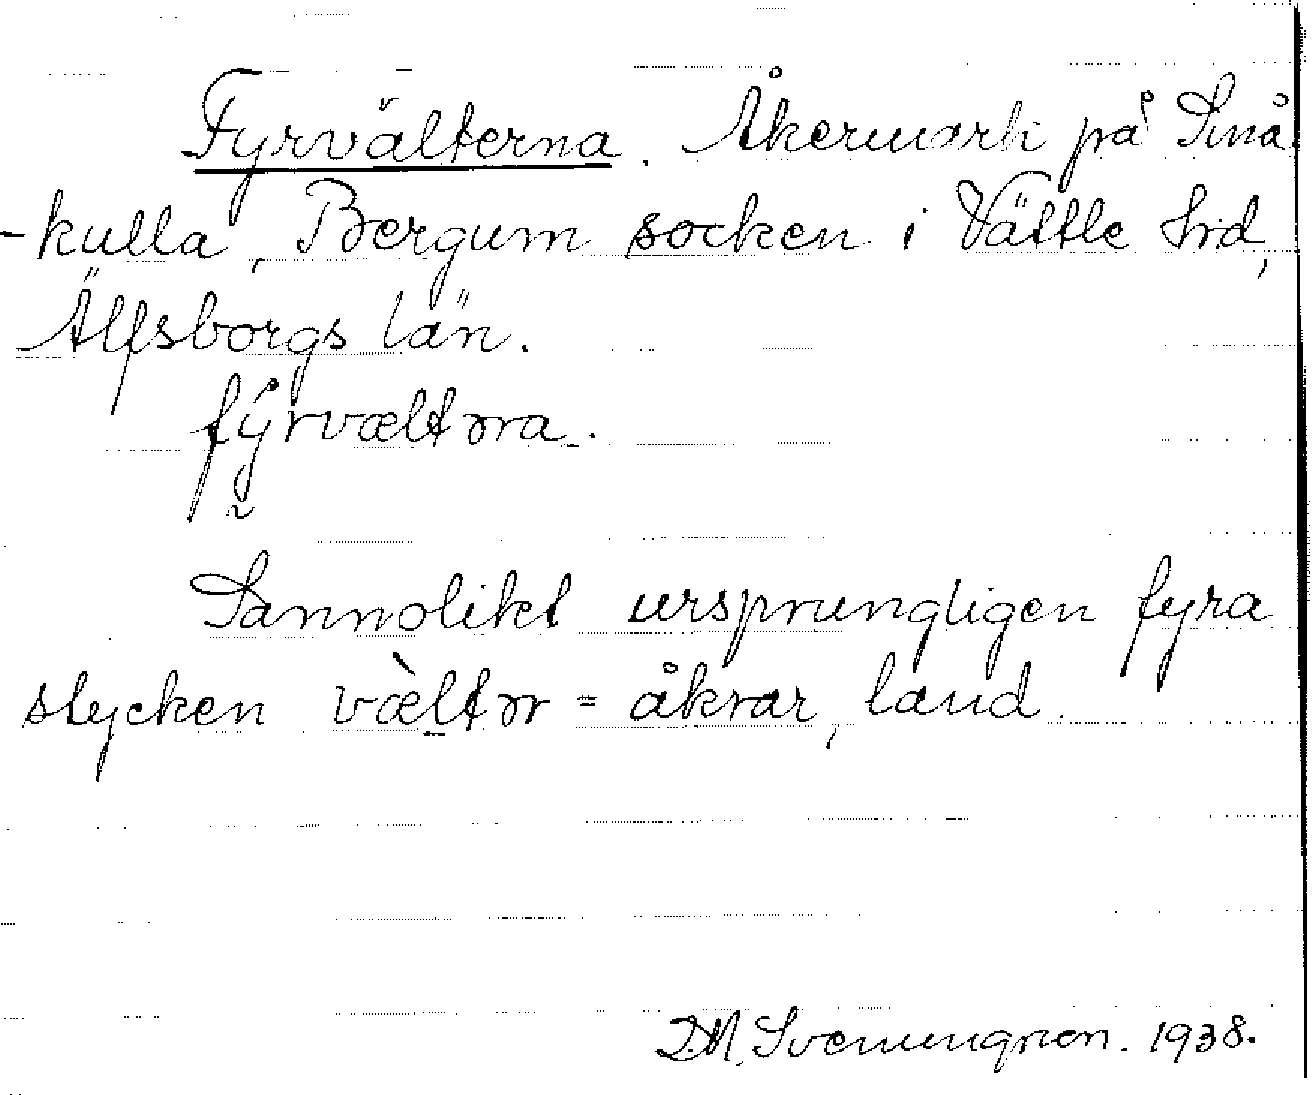 Fyrvälterna. Åkermark på Små
-kulla, Bergum socken i Vättle hrd,
Älfsborgs län.
fý̰rvæltəra.
Sannolikt ursprungligen fyra
stycken væ̀ltər = åkrar, land.
D.M. Svenungson. 1938.